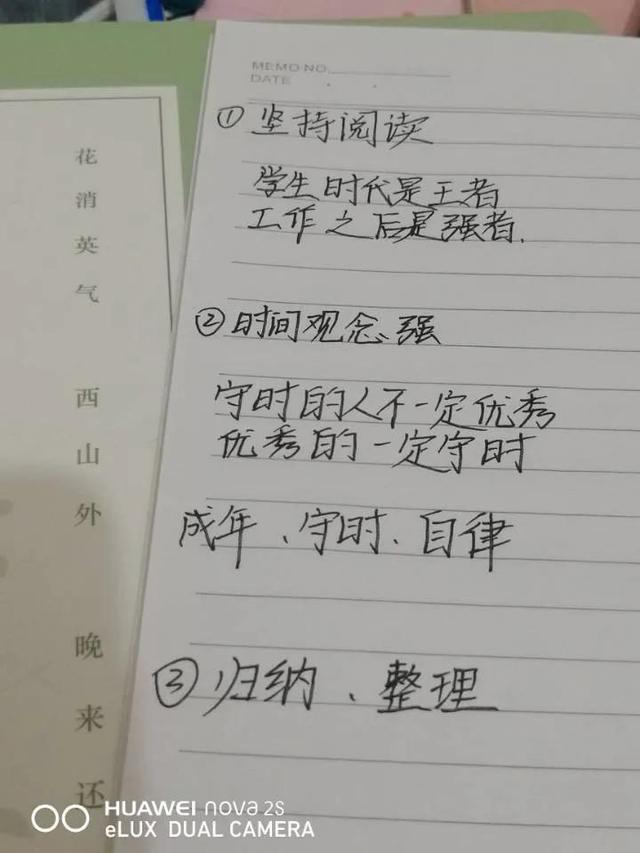 MEMO NO.
DATE
①坚持阅读
学生时代是王者
工作之后是强者.
②时间观念强
守时的人不一定优秀
优秀的一定守时
成年、守时、自律
③归纳、整理
花消英气
西山外
晚来还
HUAWEI nova 2s
eLUX DUAL CAMERA